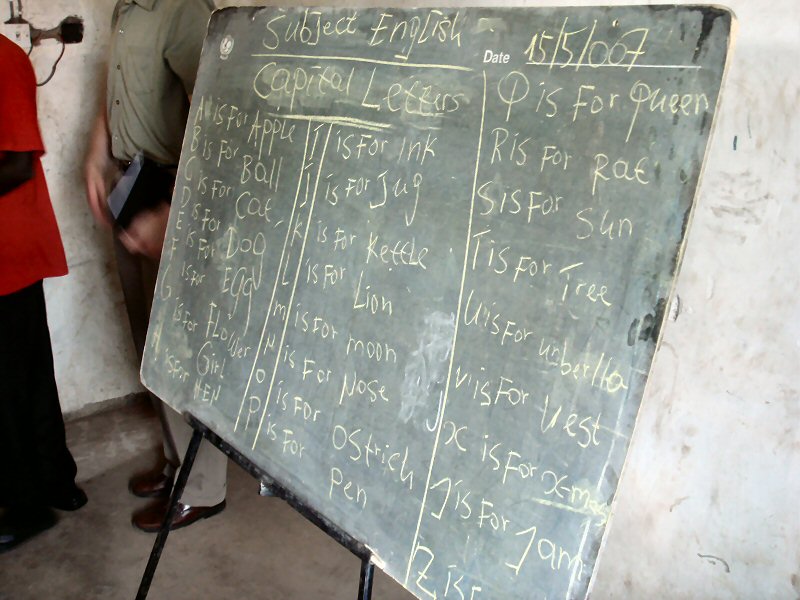 Subject English
Date 15/5/007
Capital Letters
A is For Apple
B is For Ball
C is For Cat
D is For Dog
E is For Egg
F is For Flower
G is For Girl
H is For HEN
I is For Ink
J is For Jug
K is For Kettle
L is For Lion
m is For moon
N is For Nose
O is For Ostrich
P is For Pen
Q is For Queen
R is For Rat
S is For Sun
T is For Tree
U is For unberlla
V is For Vest
X is For X-mas
J is For Jam
Z is F